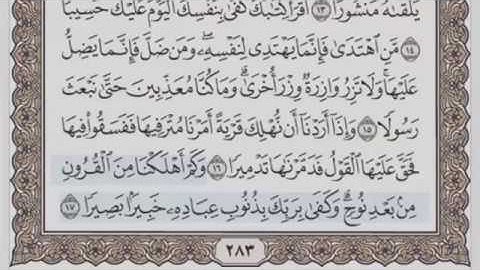 يَلْقَىٰهُ مَنشُورًا ١٣ ٱقْرَأْ كِتَٰبَكَ كَفَىٰ بِنَفْسِكَ ٱلْيَوْمَ عَلَيْكَ حَسِيبًا
١٤ مَّنِ ٱهْتَدَىٰ فَإِنَّمَا يَهْتَدِى لِنَفْسِهِۦ ۖ وَمَن ضَلَّ فَإِنَّمَا يَضِلُّ
عَلَيْهَا ۚ وَلَا تَزِرُ وَازِرَةٌ وِزْرَ أُخْرَىٰ ۗ وَمَا كُنَّا مُعَذِّبِينَ حَتَّىٰ نَبْعَثَ
رَسُولًا ١٥ وَإِذَآ أَرَدْنَآ أَن نُّهْلِكَ قَرْيَةً أَمَرْنَا مُتْرَفِيهَا فَفَسَقُوا۟ فِيهَا
فَحَقَّ عَلَيْهَا ٱلْقَوْلُ فَدَمَّرْنَٰهَا تَدْمِيرًا ١٦ وَكَمْ أَهْلَكْنَا مِنَ ٱلْقُرُونِ
مِنۢ بَعْدِ نُوحٍ ۗ وَكَفَىٰ بِرَبِّكَ بِذُنُوبِ عِبَادِهِۦ خَبِيرًۢا بَصِيرًا ١٧
٢٨٣